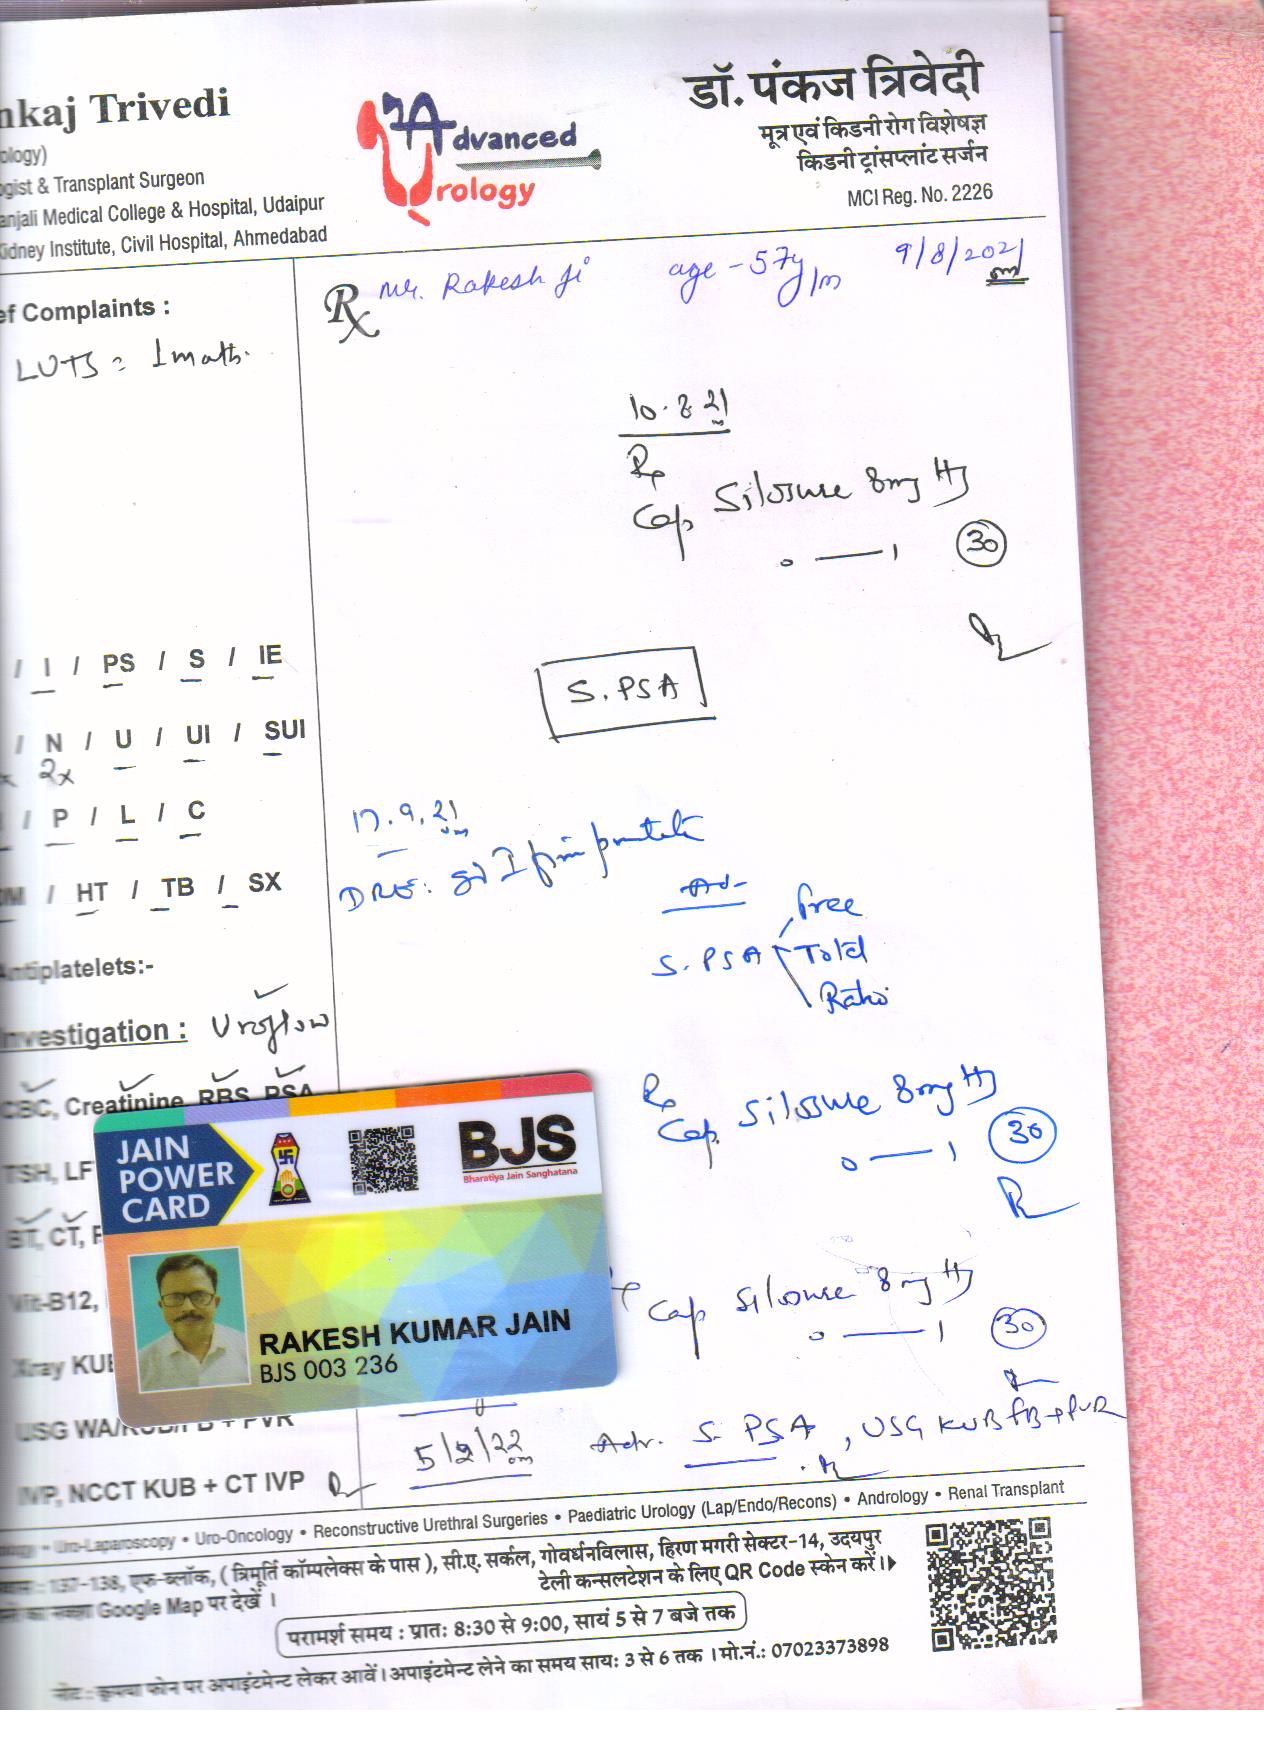 nkaj Trivedi
ology)
gist & Transplant Surgeon
anjali Medical College & Hospital, Udaipur
Kidney Institute, Civil Hospital, Ahmedabad
Advanced
Urology
डॉ. पंकज त्रिवेदी
मूत्र एवं किडनी रोग विशेषज्ञ
किडनी ट्रांसप्लांट सर्जन
MCI Reg. No. 2226
Rx Mr. Rakesh Ji age - 57y/m 9/8/2021
ef Complaints :
LUTS
10.8.21
Rp
Cap Silosure 8mg
0 — 1 30
S. PSA
/ I / PS / S / IE
/ N / U / UI / SUI
2x
/ P / L / C
DM / HT / TB / SX
Antiplatelets:-
Investigation : Uroflow
CBC, Creatinine, RBS, PSA
TSH, LF
BT, CT, P
Vit-B12,
Xray KUB
USG WA/KUB/PB + PVR
IVP, NCCT KUB + CT IVP
17.9.21
DRE:
Ad-
S. PSA Free
Total
Ratio
Rp
Cap. Silosure 8mg
0 — 1 30
Cap Silosure 8mg
0 — 1 30
5/2/22 Adv. S. PSA, USG KUB PB+PVR
JAIN
POWER
CARD
BJS
Bharatiya Jain Sanghatana
RAKESH KUMAR JAIN
BJS 003 236
Uro-Laparoscopy • Uro-Oncology • Reconstructive Urethral Surgeries • Paediatric Urology (Lap/Endo/Recons) • Andrology • Renal Transplant
: 137-138, एफ-ब्लॉक, ( त्रिमूर्ति कॉम्पलेक्स के पास ), सी.ए. सर्कल, गोवर्धनविलास, हिरण मगरी सेक्टर-14, उदयपुर
का नक्शा Google Map पर देखें । टेली कन्सलटेशन के लिए QR Code स्केन करें।
परामर्श समय : प्रातः 8:30 से 9:00, सायं 5 से 7 बजे तक
नोट : कृपया फोन पर अपाइंटमेन्ट लेकर आवें। अपाइंटमेन्ट लेने का समय सायः 3 से 6 तक । मो.नं.: 07023373898